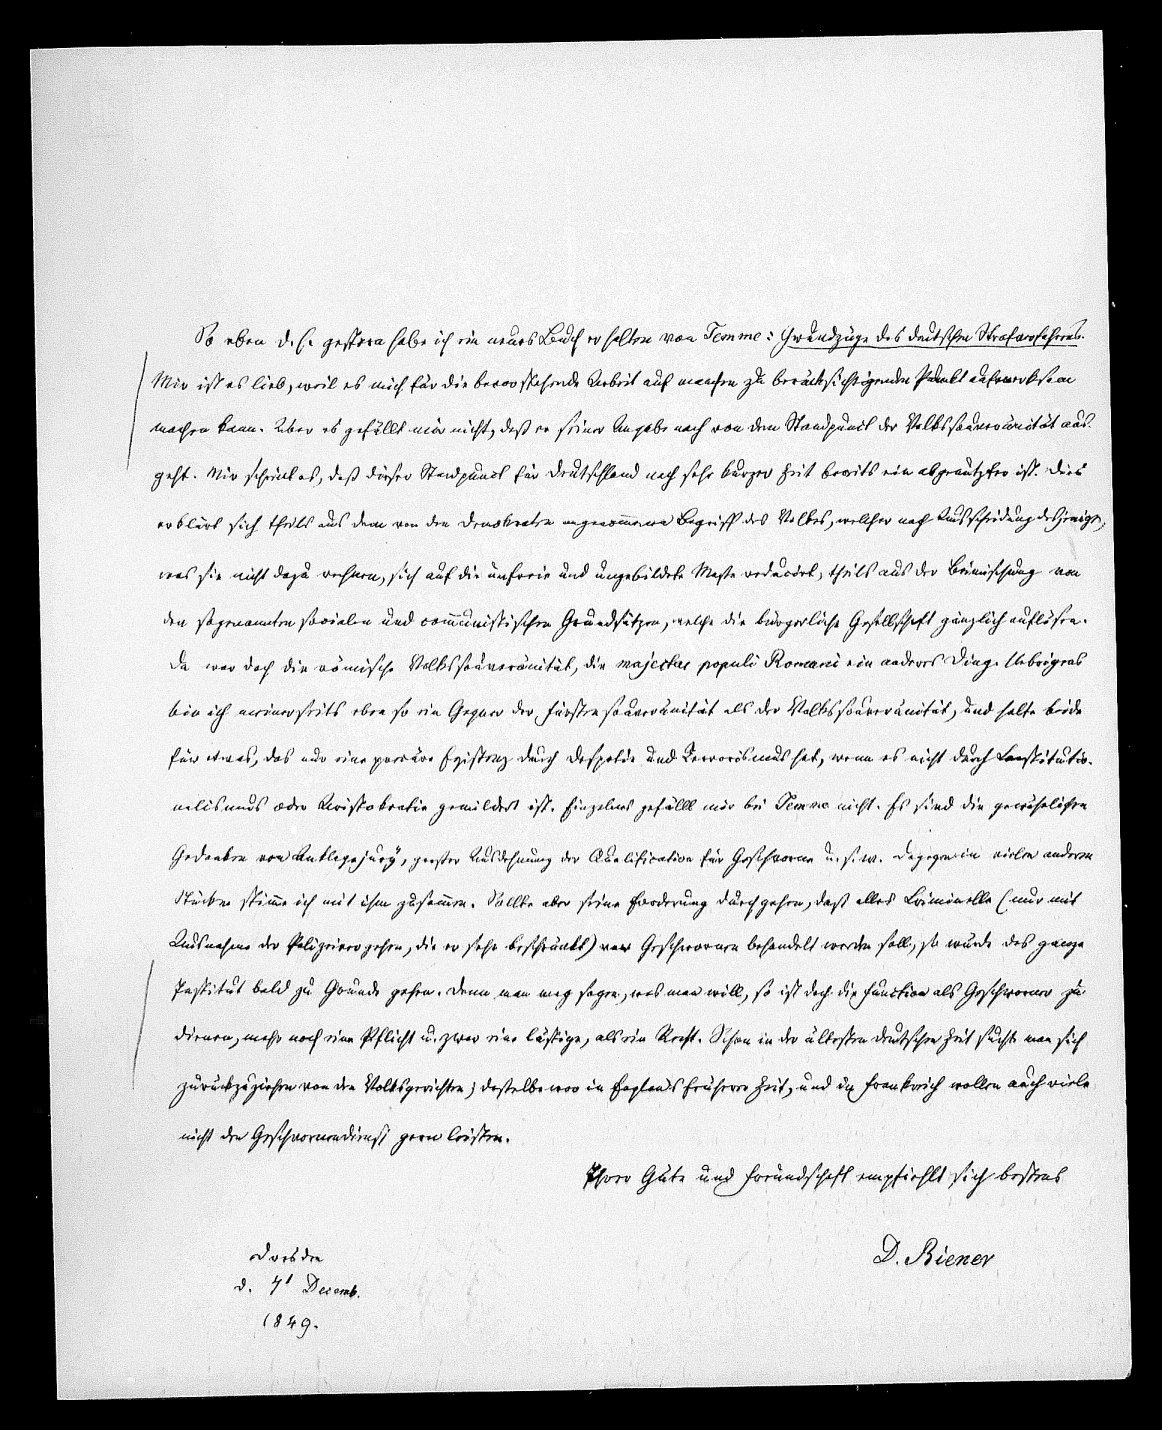 So eben d. h. gestern habe ich ein neues Buch erhalten von Temme: Grundzüge des deutschen Strafverfahrens.
Mir ist es lieb, weil es mich für die bevorstehende Arbeit auf manchen zu berücksichtigenden Punkt aufmerksam
machen kann. Aber es gefällt mir nicht, daß er seiner Angabe nach von dem Standpunct der Volkssouveränität aus-
geht. Mir scheint es, daß dieser Standpunct für Deutschland nach sehr kurzer Zeit bereits ein abgenützter ist. Dies
erklärt sich theils aus dem von den Demokraten angenommenen Begriff des Volkes, welcher nach Ausscheidung desjenigen,
was sie nicht dazu rechnen, sich auf die unfreie und ungebildete Masse reducirt, theils aus der Beimischung von
den sogenannten socialen und communistischen Grundsätzen, welche die bürgerliche Gesellschaft gänzlich auflösen.
Da war doch die römische Volkssouveränität, die majestas populi Romani ein anderes Ding. Uebrigens
bin ich meinerseits eben so ein Gegner der Fürstensouveränität als der Volkssouveränität, und halte beide
für etwas, das nur eine precäre Existenz durch Despotie und Terrorismus hat, wenn es nicht durch Constitutio-
nalismus oder Aristokratie gemildert ist. Einzelnes gefällt mir bei Temme nicht. Es sind die gewöhnlichen
Gedanken von Anklagejury, großer Ausdehnung der Qualification für Geschworne u. s. w. Dagegen in vielen anderen
Stücken stimme ich mit ihm zusammen. Sollte aber seine Forderung durchgehen, daß alles Criminelle (nur mit
Ausnahme der Polizeivergehen, die er sehr beschränkt) vor Geschwornen behandelt werden soll, so würde das ganze
Institut bald zu Grunde gehen. Denn man mag sagen, was man will, so ist doch die Function als Geschworner zu
dienen, mehr noch eine Pflicht u. zwar eine lästige, als ein Recht. Schon in der ältesten deutschen Zeit suchte man sich
zurückzuziehen von den Volksgerichten; dasselbe war in Englands früherer Zeit, und in Frankreich wollen auch viele
nicht den Geschwornendienst gern leisten.
Ihrer Güte und Freundschaft empfiehlt sich bestens
D. Biener
Dresden
d. 7' Decemb.
1849.